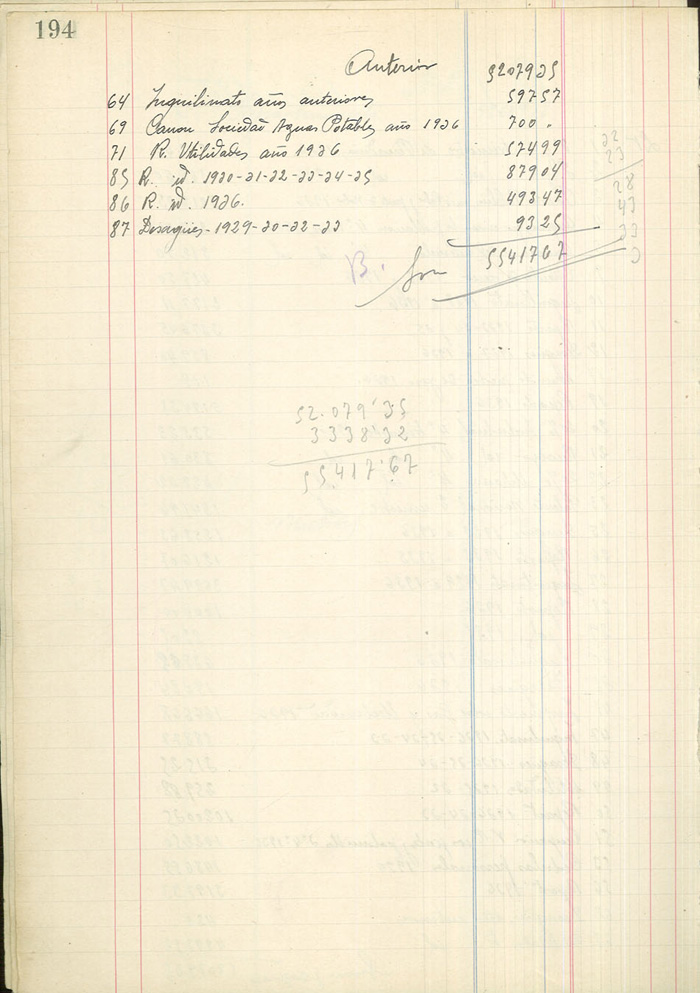 194
Anterior 5207935
64 Inquilinats años anteriores 59757
69 Canon Sociedad Aguas Potables año 1936 700.
71 R. Utilidades año 1936 57499
85 R. id. 1930-31-32-33-34-35 87904
86 R. id. 1936. 49347
87 Desagües-1929-30-32-33 9325
B. 5541767
32
23
28
43
33
52.079'35
3338'32
55417'67